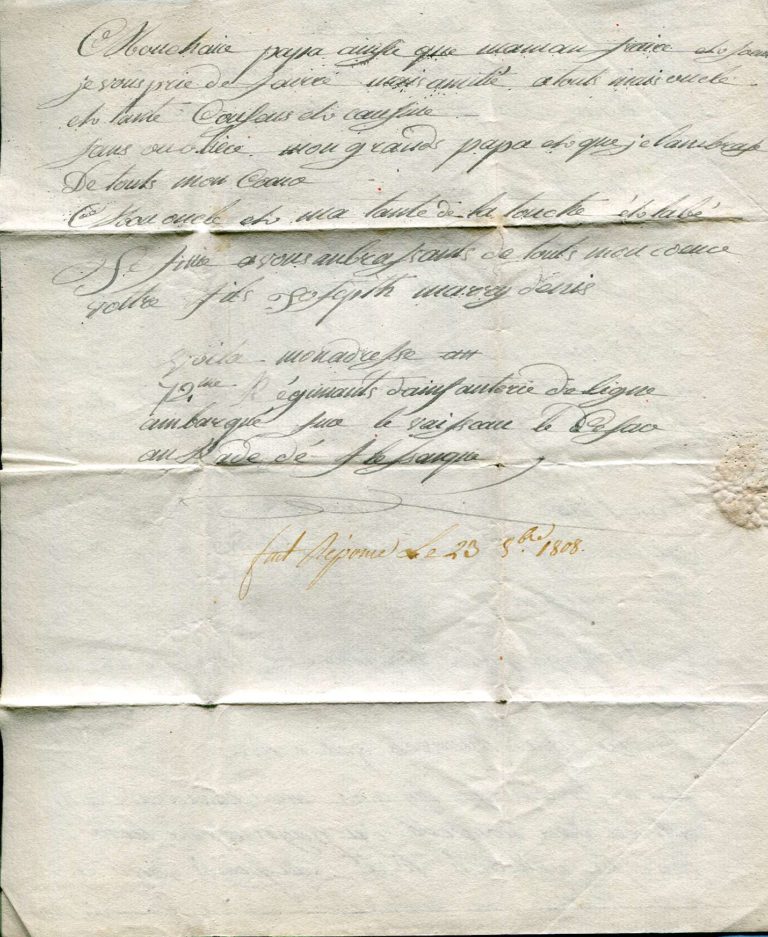 Mon chaire papa ainse que maman fraire et soeu
je vous prie de faire mais amitié a touts mais oncle
et tante Cousens et causine
sans ouoblier mon grands papa et que je l'ambrasse
De touts mon Coeure
Mon oncle et ma tante de la touche et labé
Je fini a vous anbrassants de touts mon coeure
votre fils Joseph marry denis
voila mon adresse au
72me Régimants dainfanterie de ligne
ambarqué sur le vaisseau le
au Rade de flessaigue
fait Réponce Le 23 8bre 1808.